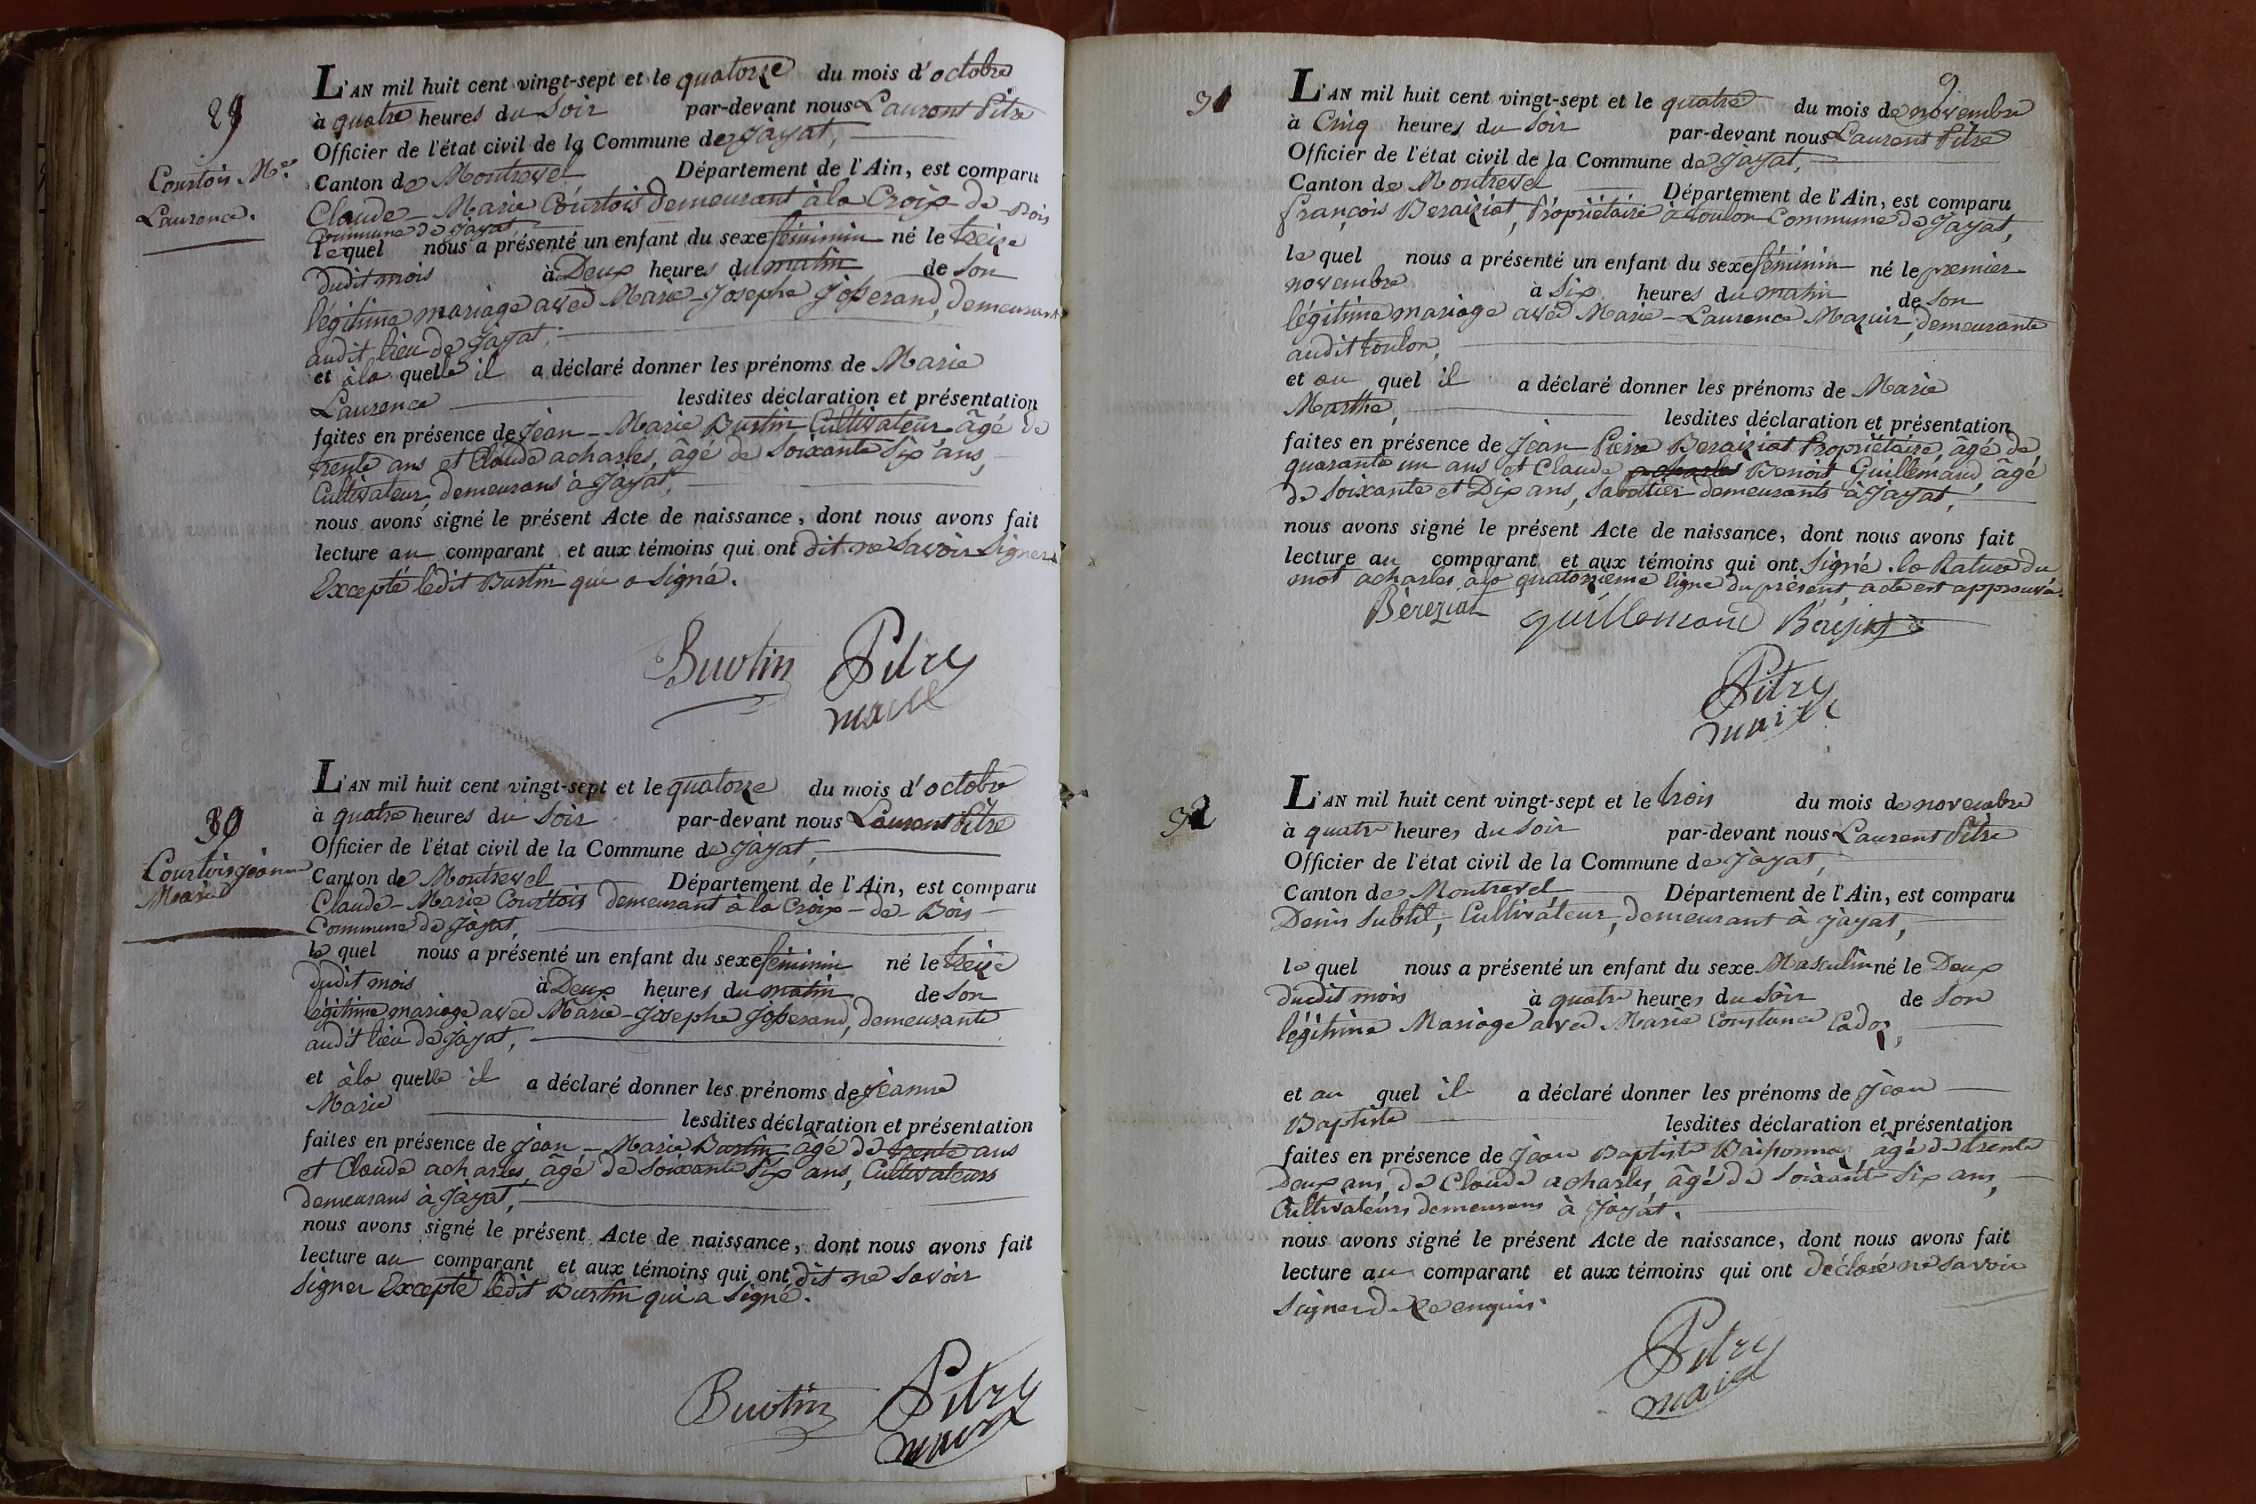 29
Courtois Mie
Laurence.
L'AN mil huit cent vingt-sept et le quatorze du mois d'octobre
à quatre heures du soir par-devant nous Laurent Pitre
Officier de l'état civil de la Commune de Jayat,
Canton de Montrevel Département de l'Ain, est comparu
Claude-Marie Courtois demeurant à la Croix-de-Bois
Commune de Jayat,
lequel nous a présenté un enfant du sexe féminin né le treize
dudit mois à Deux heures du matin de son
légitime mariage avec Marie-Josephe Josserand, demeurant
audit lieu de Jayat,
et à la quelle il a déclaré donner les prénoms de Marie
Laurence lesdites déclaration et présentation
faites en présence de Jean-Marie Burtin Cultivateur âgé de
trente ans et Claude acharles, âgé de soixante six ans,
Cultivateur, demeurans à Jayat,
nous avons signé le présent Acte de naissance, dont nous avons fait
lecture au comparant et aux témoins qui ont dit ne savoir signer
Excepté ledit Burtin qui a signé.
Buvtin Pitre
maire
30
Courtois jeanne
Marie
L'AN mil huit cent vingt-sept et le quatorze du mois d'octobre
à quatre heures du soir par-devant nous Laurent Pitre
Officier de l'état civil de la Commune de Jayat,
Canton de Montrevel Département de l'Ain, est comparu
Claude-Marie Courtois demeurant à la Croix-de-Bois
Commune de Jayat,
le quel nous a présenté un enfant du sexe féminin né le treize
dudit mois à Deux heures du matin de son
légitime mariage avec Marie-Josephe Josserand, demeurante
audit lieu de Jayat,
et à la quelle il a déclaré donner les prénoms de Jeanne
Marie lesdites déclaration et présentation
faites en présence de Jean-Marie Burtin âgé de trente ans
et Claude acharles, âgé de soixante six ans, Cultivateurs
demeurans à Jayat,
nous avons signé le présent Acte de naissance, dont nous avons fait
lecture au comparant et aux témoins qui ont dit ne savoir
signer Excepté ledit Burtin qui a signé.
Buvtin Pitre
maire
9
31
L'AN mil huit cent vingt-sept et le quatre du mois de novembre
à Cinq heures du soir par-devant nous Laurent Pitre
Officier de l'état civil de la Commune de Jayat,
Canton de Montrevel Département de l'Ain, est comparu
françois Beraiziat, Propriétaire à toulon Commune de Jayat,
le quel nous a présenté un enfant du sexe féminin né le premier
novembre à six heures du matin de son
légitime mariage avec Marie-Laurence Mazuir, demeurante
audit toulon,
et au quel il a déclaré donner les prénoms de Marie
Marthe, lesdites déclaration et présentation
faites en présence de Jean Pierre Beraiziat Propriétaire, âgé de
quarante un ans et Claude acharles Benoit Guillemaud, âgé
de soixante et Dix ans, sabotier demeurants à Jayat,
nous avons signé le présent Acte de naissance, dont nous avons fait
lecture au comparant et aux témoins qui ont signé. la Rature du
mot acharles à la quatorzieme ligne du présent acte est approuvée.
Bèreziat guillemaud Béréziat
Pitre
maire
32
L'AN mil huit cent vingt-sept et le trois du mois de novembre
à quatre heures du soir par-devant nous Laurent Pitre
Officier de l'état civil de la Commune de Jayat,
Canton de Montrevel Département de l'Ain, est comparu
Denis Subtil, Cultivateur, demeurant à Jayat,
le quel nous a présenté un enfant du sexe Masculin né le Deux
dudit mois à quatre heures du soir de son
légitime Mariage avec Marie Constance Cadoz,
et au quel il a déclaré donner les prénoms de Jean
Baptiste lesdites déclaration et présentation
faites en présence de Jean Baptiste âgé de trente
Deux ans, de Claude acharles, âgé de soixante six ans,
Cultivateurs demeurans à Jayat.
nous avons signé le présent Acte de naissance, dont nous avons fait
lecture au comparant et aux témoins qui ont déclaré ne savoir
signer de ce enquis.
Pitre
maire